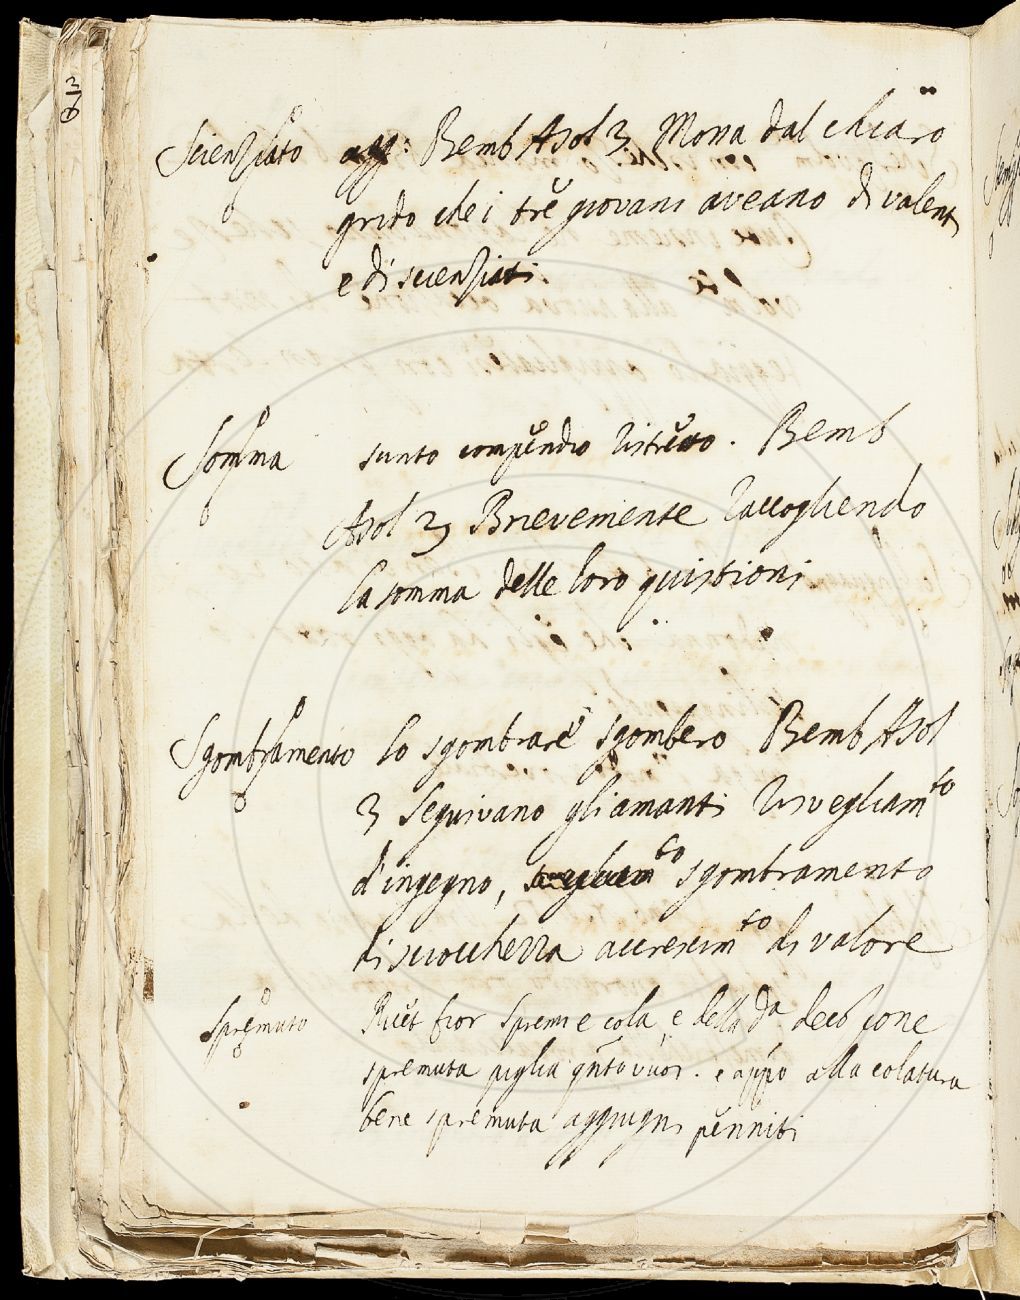 Scienziato agg: Bemb Asol 3 Mossa dal chiaro
grido che i tre giovani aveano di valenti
e di scienziati
Somma sunto compendio ristretto. Bemb
Asol 3 Brievemente raccogliendo
la somma delle loro quistioni
Sgombramento lo sgombrare sgombero Bemb Asol
3 Seguivano gli amanti risvegliam.to
d'ingegno, sgombramento
di sciocchezza accrescim.to di valore
Spremuto Ricet fior Spremi e cola e della da decozione
spremuta piglia vuoi. e appo alla colatura
bene spremuta aggiugni penniti